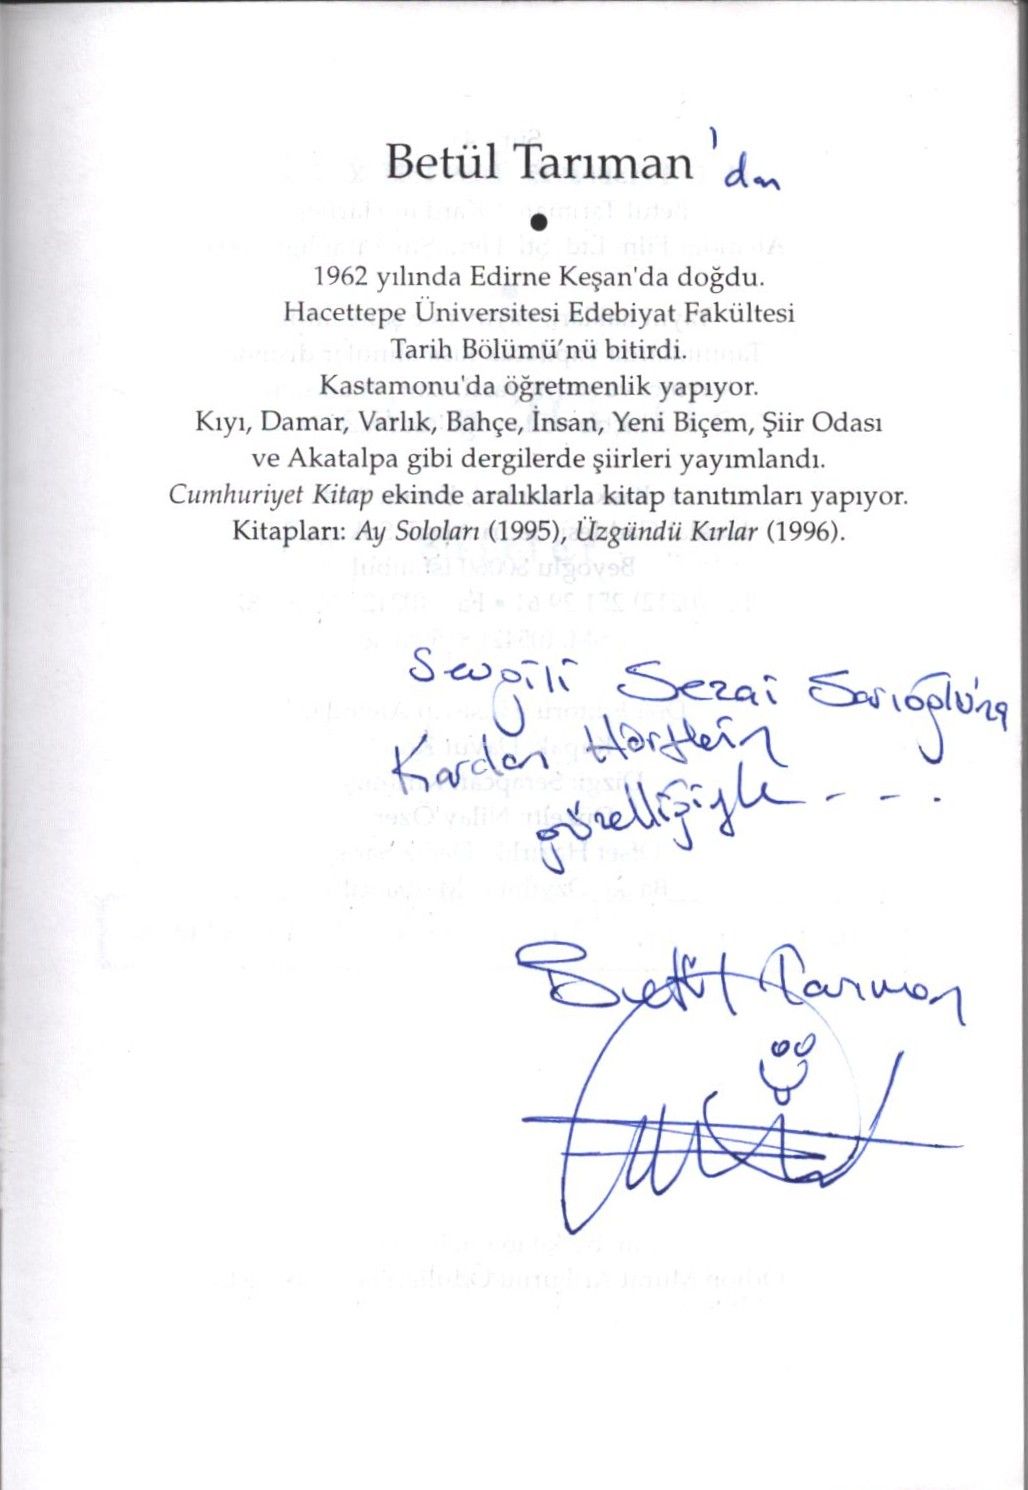 Betül Tarıman 'dan
●
1962 yılında Edirne Keşan'da doğdu.
Hacettepe Üniversitesi Edebiyat Fakültesi
Tarih Bölümü'nü bitirdi.
Kastamonu'da öğretmenlik yapıyor.
Kıyı, Damar, Varlık, Bahçe, İnsan, Yeni Biçem, Şiir Odası
ve Akatalpa gibi dergilerde şiirleri yayımlandı.
Cumhuriyet Kitap ekinde aralıklarla kitap tanıtımları yapıyor.
Kitapları: Ay Soloları (1995), Üzgündü Kırlar (1996).
Sevgili Sezai Sarıoğlu'na
Kardan Harflerin
güzelliğiyle - - - .
Betül Tarıman